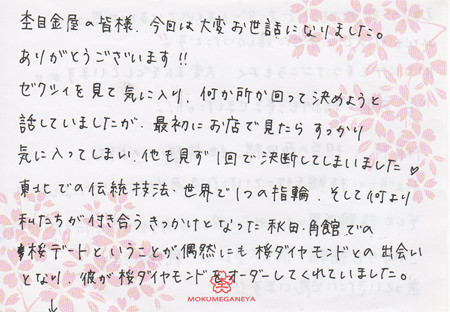 杢目金屋の皆様、今回は大変お世話になりました。
ありがとうございます!!
ゼクシィを見て気に入り、何か所か回って決めようと
話していましたが、最初にお店で見たら すっかり
気に入ってしまい、他も見ず1回で決断してしまいました♡
東北での伝統技法、世界で1つの指輪、そして何より
私たちが付き合うきっかけとなった 秋田・角館での
桜デートということが、偶然にも 桜ダイヤモンドとの出会い
となり、彼が桜ダイヤモンドをオーダーしてくれていました。
↓
MOKUMEGANEYA